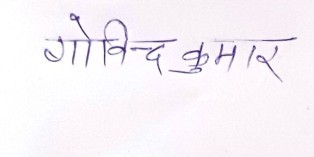 गोविन्द कुमार